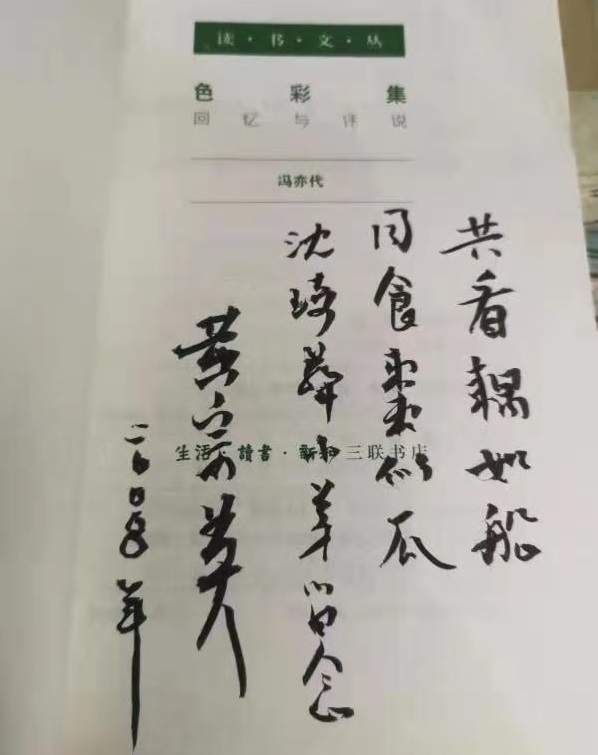 读·书·文·丛
色彩集
回忆与评说
冯亦代
共看藕如船
同食棗似瓜
沈琦華小弟留念
黄宗英
二〇〇五年
生活·讀書·新知三联书店